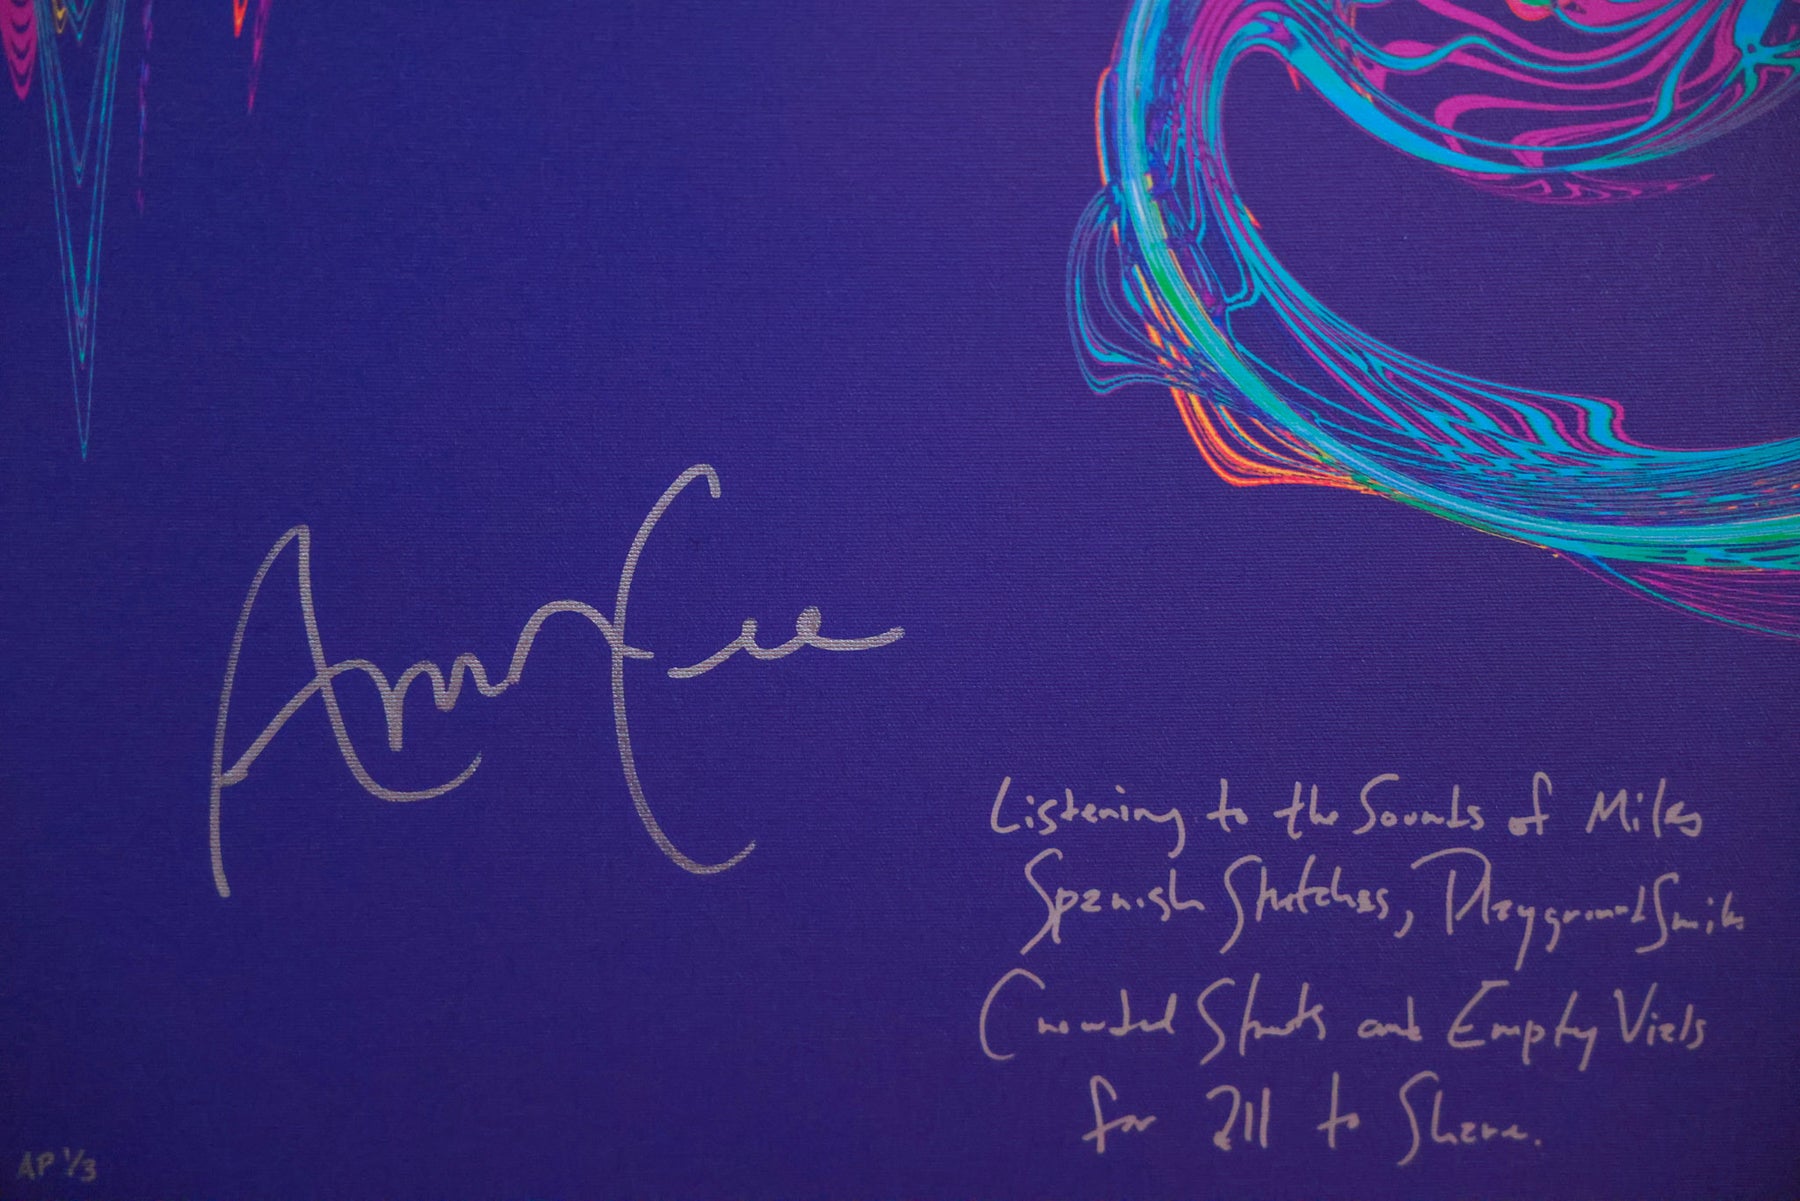 Listening to the Sounds of Miles
Spanish Sketches, Playground Smiles
Crowded Streets and Empty Vials
for all to Share.
AP 1/3